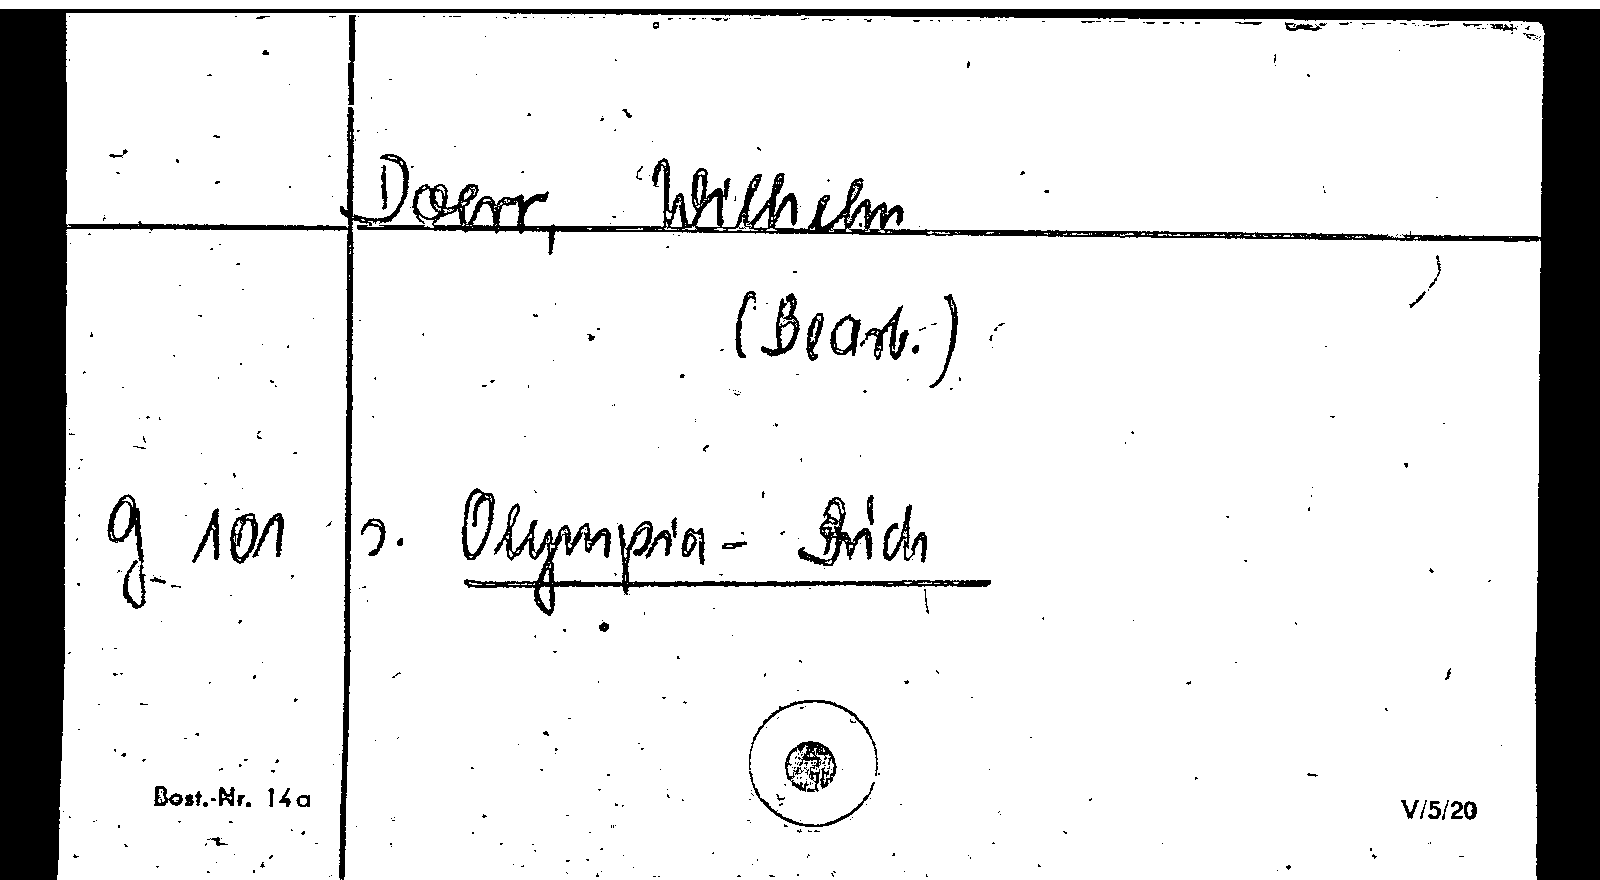 Doerr, Wilhelm
(Bearb.)
g 101 s. Olympia-Buch
Best.-Nr. 14a
V/5/20